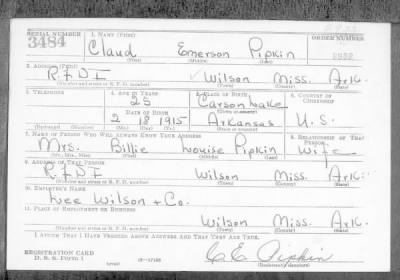 SERIAL NUMBER 1. NAME (Print) ORDER NUMBER
3484 Claud Emerson Pipkin
(First) (Middle) (Last)
2. ADDRESS (Print)
R.F.D. 1 Wilson Miss. Ark.
(Number and street or R. F. D. number) (Town) (County) (State)
3. TELEPHONE 4. AGE IN YEARS 5. PLACE OF BIRTH 6. COUNTRY OF CITIZENSHIP
25 Carson Lake
DATE OF BIRTH (Town or county)
2 18 1915 Arkansas U.S.
(Exchange) (Number) (Mo.) (Day) (Yr.) (State or country)
7. NAME OF PERSON WHO WILL ALWAYS KNOW YOUR ADDRESS 8. RELATIONSHIP OF THAT PERSON
Mrs. Billie Louise Pipkin Wife
(Mr., Mrs., Miss) (First) (Middle) (Last)
9. ADDRESS OF THAT PERSON
R.F.D. 1 Wilson Miss. Ark.
(Number and street or R. F. D. number) (Town) (County) (State)
10. EMPLOYER'S NAME
Lee Wilson & Co.
11. PLACE OF EMPLOYMENT OR BUSINESS
Wilson Miss. Ark.
(Number and street or R. F. D. number) (Town) (County) (State)
I AFFIRM THAT I HAVE VERIFIED ABOVE ANSWERS AND THAT THEY ARE TRUE.
REGISTRATION CARD
D. S. S. Form 1 (over) 16—17105 C E Pipkin
(Registrant's signature)